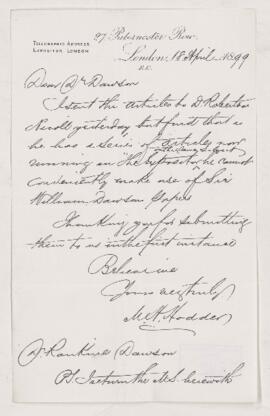 27 Paternoster Row,
TELEGRAPHIC ADDRESS
EXPOSITOR LONDON
London, 18 April 1899
E.C.
Dear Dr Dawson
I sent the articles to Dr Robertson
Nicoll yesterday but find that as
he has a series of articles now
running in The Expositor he cannot
conveniently make use of Sir
William Dawson Papers
Thanking you for submitting
them to us in the first instance
Believe me
Yours very truly
M H Hodder
Dr Rankine Dawson
PS. I return the MS. herewith